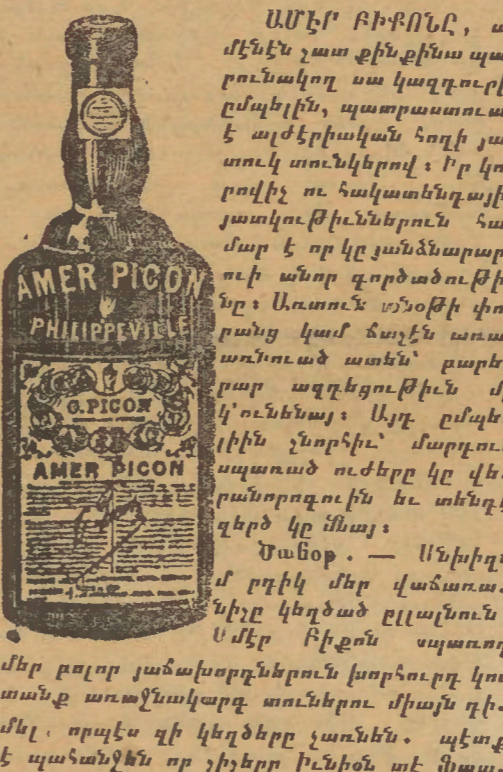 AMER PICON
PHILIPPEVILLE
G. PICON
AMER PICON
ԱՄԷՐ ԲԻՔՈՆԸ, ա
մէնէն շատ քինքինա պա
րունակող սա կազդուրի
ըմպելին, պատրաստուա
է ալժէրիական հողի յա
տուկ տունկերով։ Իր կո
րովիչ ու հակատենդայի
յատկութիւններուն հա
մար է որ կը յանձնարար
ուի անոր գործածութի
նը։ Առտուն անօթի փո
րանց կամ ճաշէն առա
առնուած ատեն՝ բարե
րար ազդեցութիւն մ
կ՚ունենայ։ Այդ ըմպե
լիին շնորհիւ՝ մարդու
սպառած ուժերը կը վե
րանորոգուին եւ տենդէ
զերծ կը մնայ։
Ծանօթ. — Անխիղ
մ րդիկ մեր վաճառա
նիշը կեղծած ըլլալնուն
Ամէր Բիքոն սպառող
մեր բոլոր յաճախորդներուն խորհուրդ կու
տանք առաջնակարգ տուներու միայն դի-
մել, որպէս զի կեղծերը չառնեն. պէտք
է պահանջեն որ շիշերը Իւնիօն տէ Ֆապ